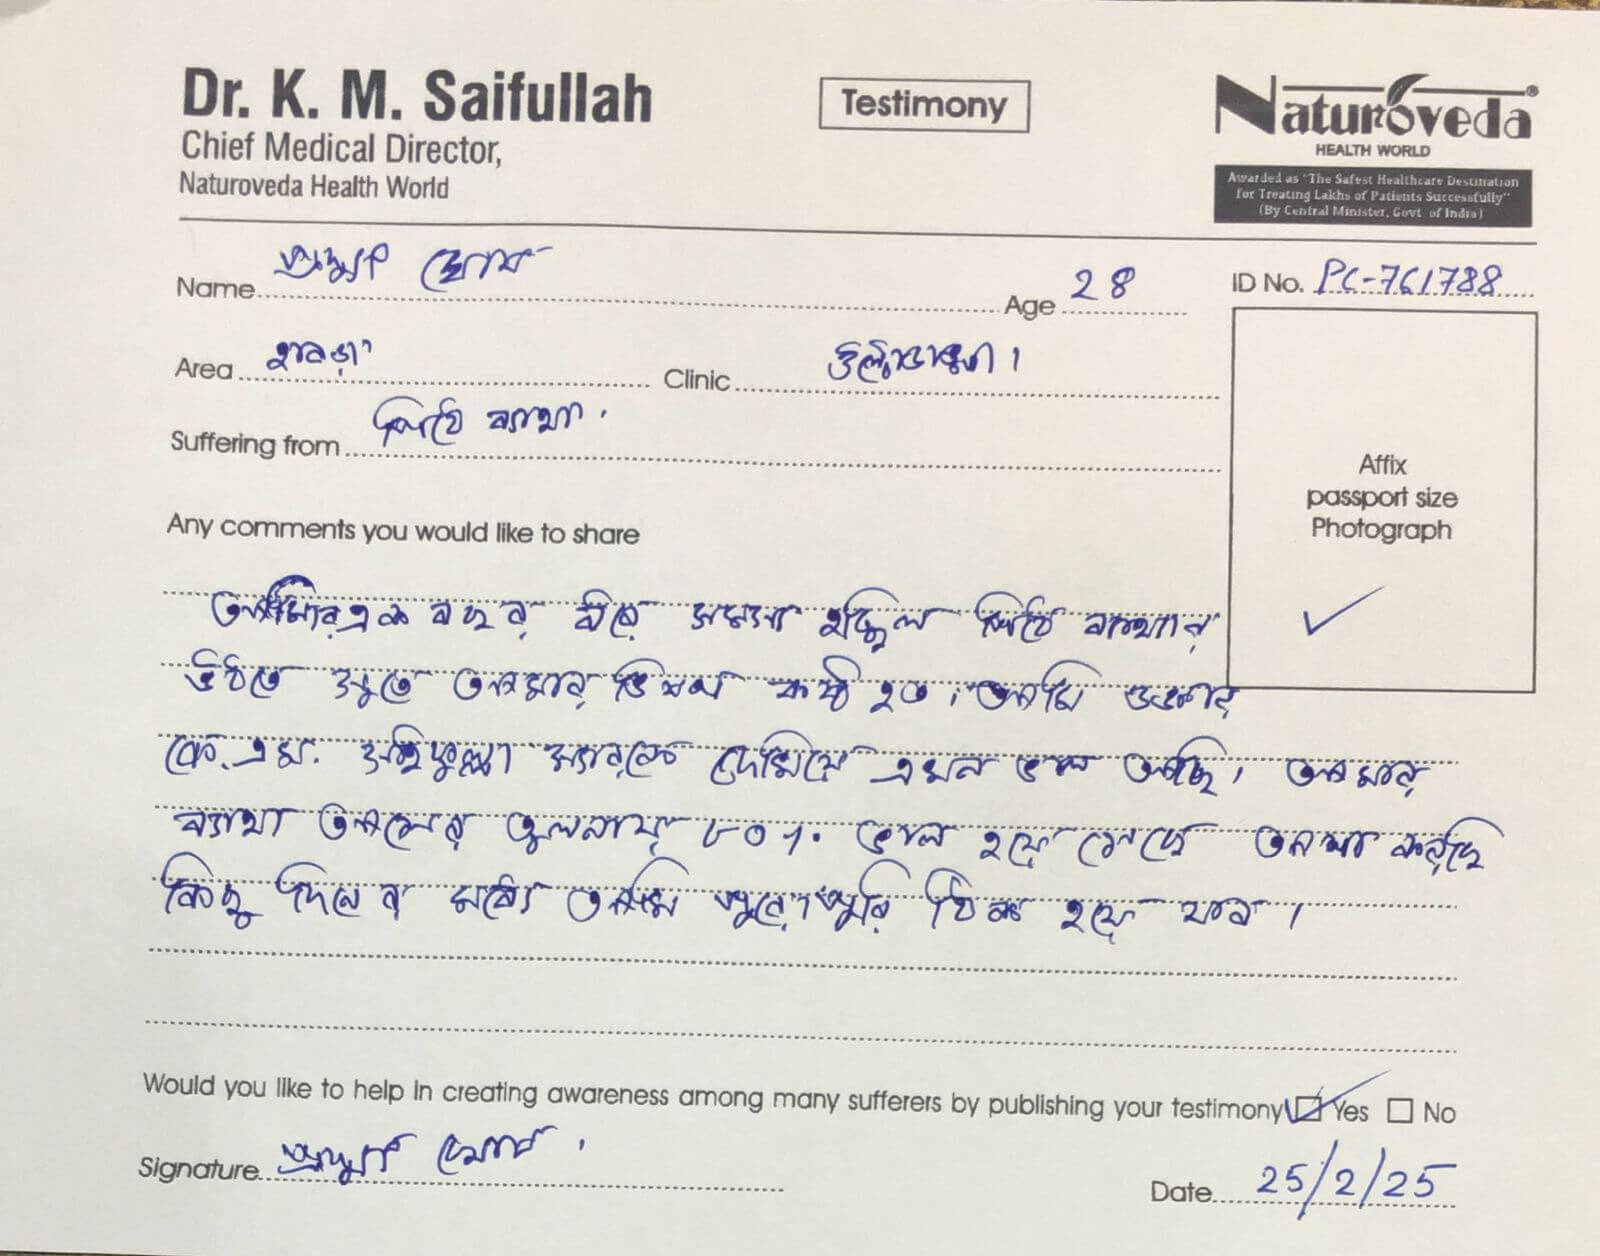 Dr. K. M. Saifullah
Chief Medical Director,
Naturoveda Health World
Testimony
Naturoveda®
HEALTH WORLD
Awarded as "The Safest Healthcare Destination
for Treating Lakhs of Patients Successfully"
(By Central Minister, Govt. of India)
Name ঘোষ Age 28 ID No. PC-761788
Area হাবড়া Clinic উল্টোডাঙ্গা।
Suffering from পিঠে ব্যাথা.
Affix
passport size
Photograph
Any comments you would like to share
আমার এক বছর ধরে সমস্যা হচ্ছিল পিঠে ব্যাথার
উঠতে শুতে আমার ভিষণ কষ্ট হত। আমি ডাক্তার
কে.এম. সাইফুল্লা স্যারকে দেখিয়ে এখন ভাল আছি। আমার
ব্যাথা আগের তুলনায় ৮০%. ভাল হয়ে গেছে আশা করছি
কিছু দিনের মধ্যে আমি পুরোপুরি ঠিক হয়ে যাব।
Would you like to help in creating awareness among many sufferers by publishing your testimony Yes No
Signature ঘোষ.
Date 25/2/25